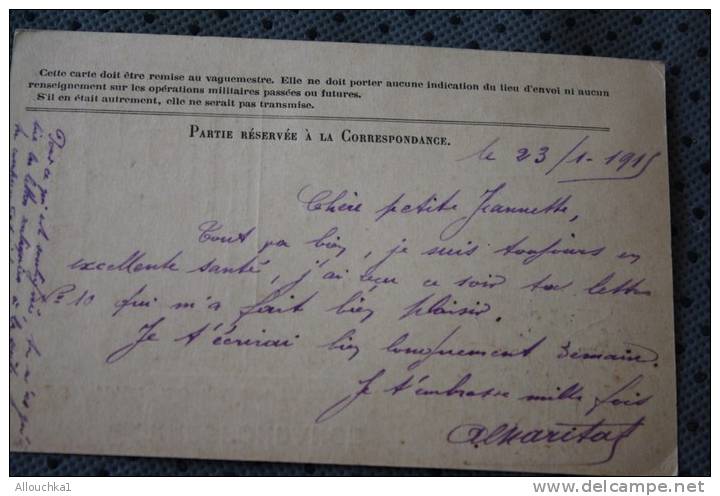 Cette carte doit être remise au vaguemestre. Elle ne doit porter aucune indication du lieu d'envoi ni aucun
renseignement sur les opérations militaires passées ou futures.
S'il en était autrement, elle ne serait pas transmise.
PARTIE RÉSERVÉE À LA CORRESPONDANCE.
le 23/1-1915
Chère petite Jeannette,
Tout va bien, je suis toujours en
excellente santé, j'ai reçu ce soir ta lettre
No 10 qui m'a fait bien plaisir.
Je t'écrirai bien longuement demain.
Je t'embrasse mille fois
Tout ce qui est
les lettres
© Allouchka1
delcampe.net